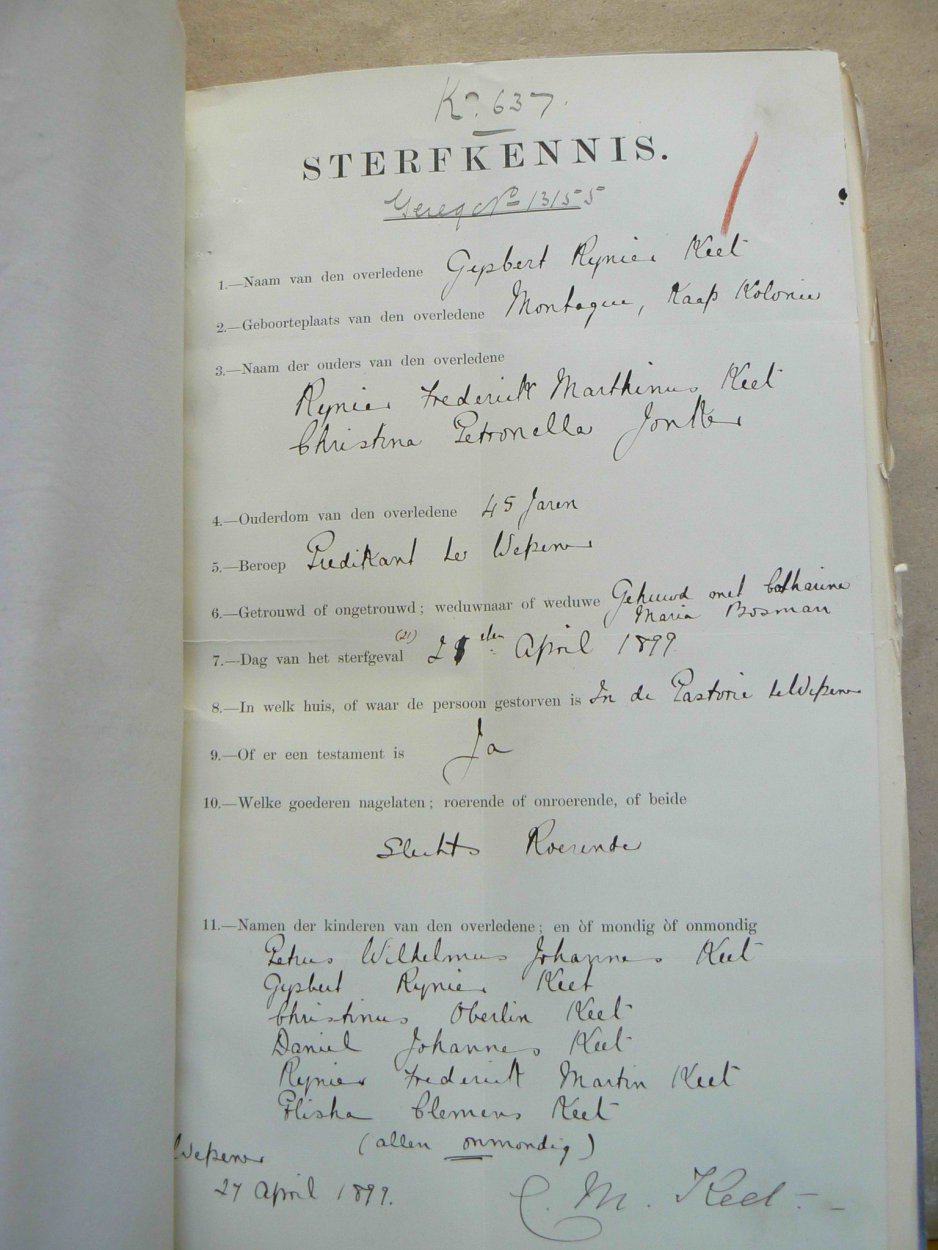 No. 637.
STERFKENNIS.
Gereg No 13155
1.—Naam van den overledene Gysbert Rynier Keet
2.—Geboorteplaats van den overledene Montague, Kaap Kolonie
3.—Naam der ouders van den overledene
Rynier Frederick Marthinus Keet
Christina Petronella Jonker
4.—Ouderdom van den overledene 45 Jaren
5.—Beroep Predikant te Wepener
6.—Getrouwd of ongetrouwd; weduwnaar of weduwe Gehuwd met Catharina
Maria Bosman
(21)
7.—Dag van het sterfgeval 21sten April 1899
8.—In welk huis, of waar de persoon gestorven is In de Pastorie te Wepener
9.—Of er een testament is Ja
10.—Welke goederen nagelaten; roerende of onroerende, of beide
Slechts Roerende
11.—Namen der kinderen van den overledene; en òf mondig òf onmondig
Petrus Wilhelmus Johannes Keet
Gysbert Rynier Keet
Christinus Oberlin Keet
Daniel Johannes Keet
Rynier Frederick Martin Keet
Elisha Clemens Keet
(allen onmondig)
Wepener
27 April 1899.
C. M. Keet.